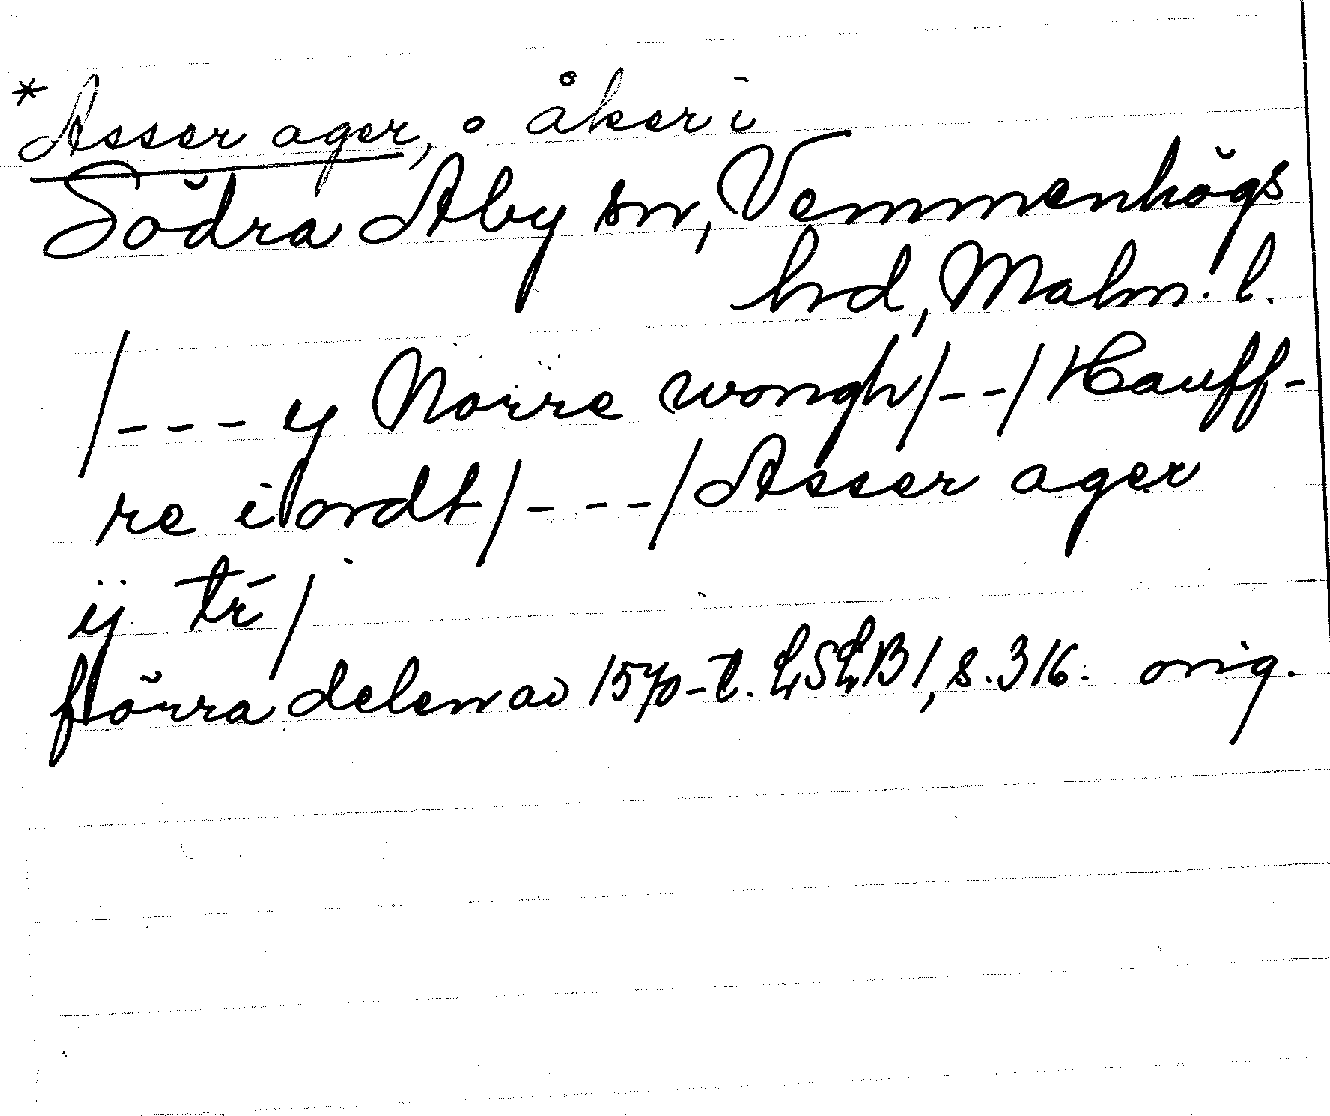 *Asser ager, ° åker i
Södra Åby sn, Vemmenhögs
hrd, Malm. l.
/--- y Nörre wongh/--/Hauff-
re iordt/---/Asser ager
ij tr/
förra delen av 1570-t. LSLB1, s. 316. orig.